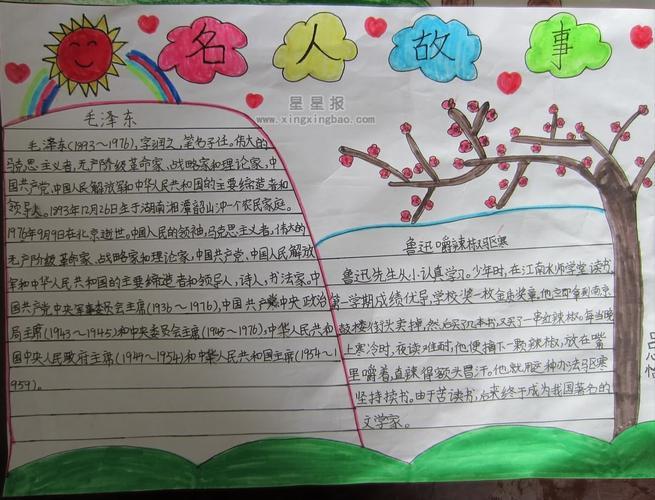 名人故事
星星报
www.xingxingbao.com
毛泽东
毛泽东(1893～1976),字润之,笔名子任。伟大的
马克思主义者,无产阶级革命家、战略家和理论家,中
国共产党、中国人民解放军和中华人民共和国的主要缔造者和
领导人。1893年12月26日生于湖南湘潭韶山冲一个农民家庭。
1976年9月9日在北京逝世。中国人民的领袖,马克思主义者,伟大的
无产阶级革命家、战略家和理论家,中国共产党、中国人民解放
军和中华人民共和国的主要缔造者和领导人,诗人,书法家,中
国共产党中央军事委员会主席(1936～1976),中国共产党中央政治
局主席(1943～1945)和中央委员会主席(1945～1976),中华人民共和
国中央人民政府主席(1949～1954)和中华人民共和国主席(1954～1
959)。
鲁迅嚼辣椒驱寒
鲁迅先生从小认真学习。少年时,在江南水师学堂读书,
第一学期成绩优异,学校奖一枚金质奖章,他立即拿到南京
鼓楼街头卖掉,然后买了几本书,又买了一串红辣椒。每当晚
上寒冷时,夜读难耐,他便摘下一颗辣椒,放在嘴
里嚼着,直辣得额头冒汗。他就用这种办法驱寒
坚持读书。由于苦读书,后来终于成为我国著名的
文学家。